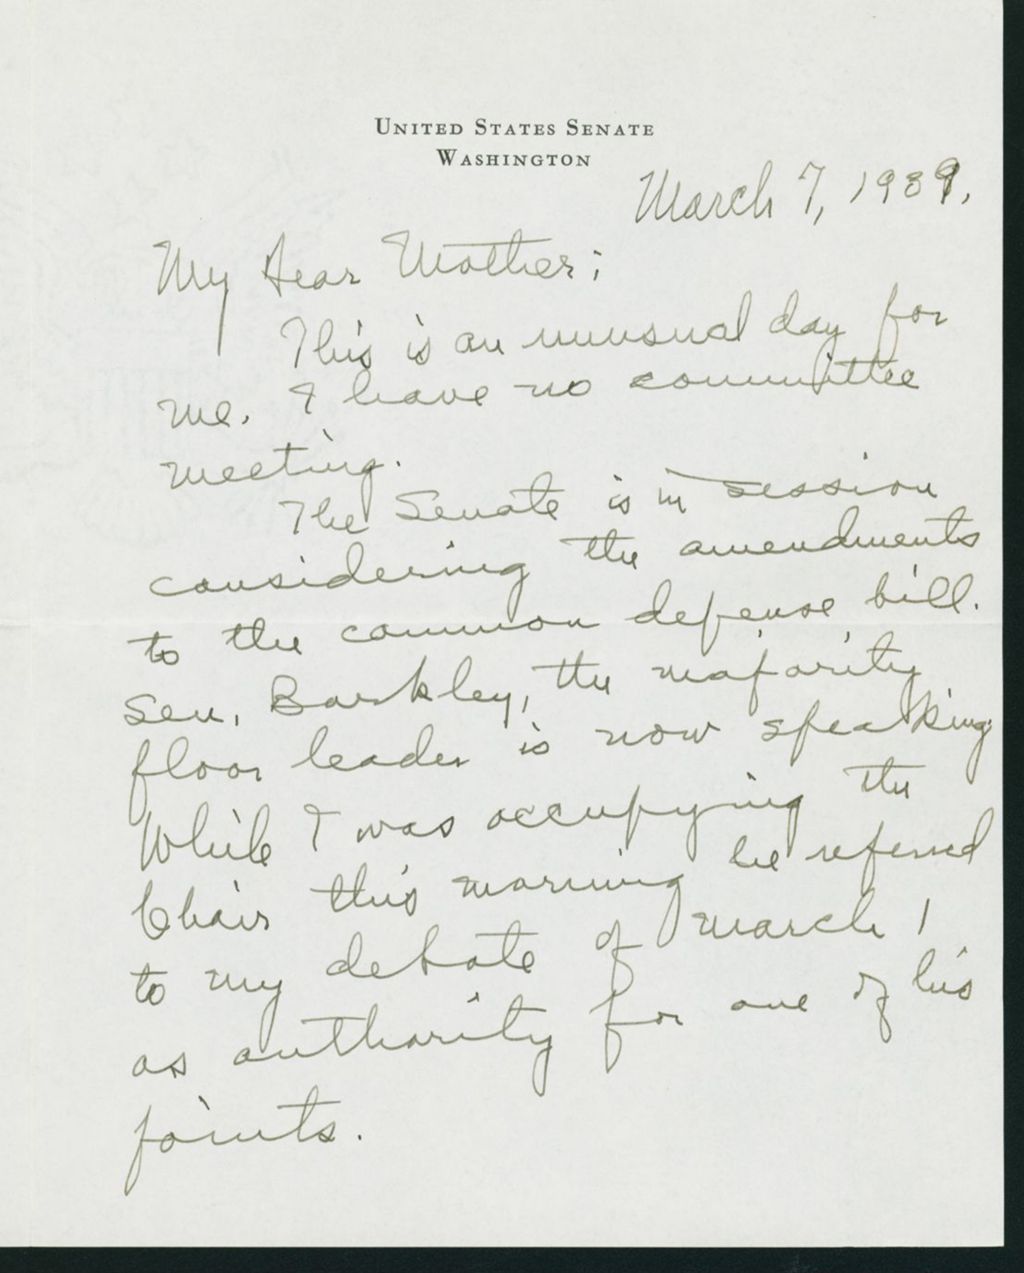 UNITED STATES SENATE
WASHINGTON
March 7, 1939.
My Dear Mother:
This is an unusual day for
me. I have no committee
meeting.
The Senate is in session
considering the amendments
to the common defense bill.
Sen. Barkley, the majority
floor leader is now speaking.
While I was occupying the
Chair this morning he referred
to my debate of March 1
as authority for one of his
points.